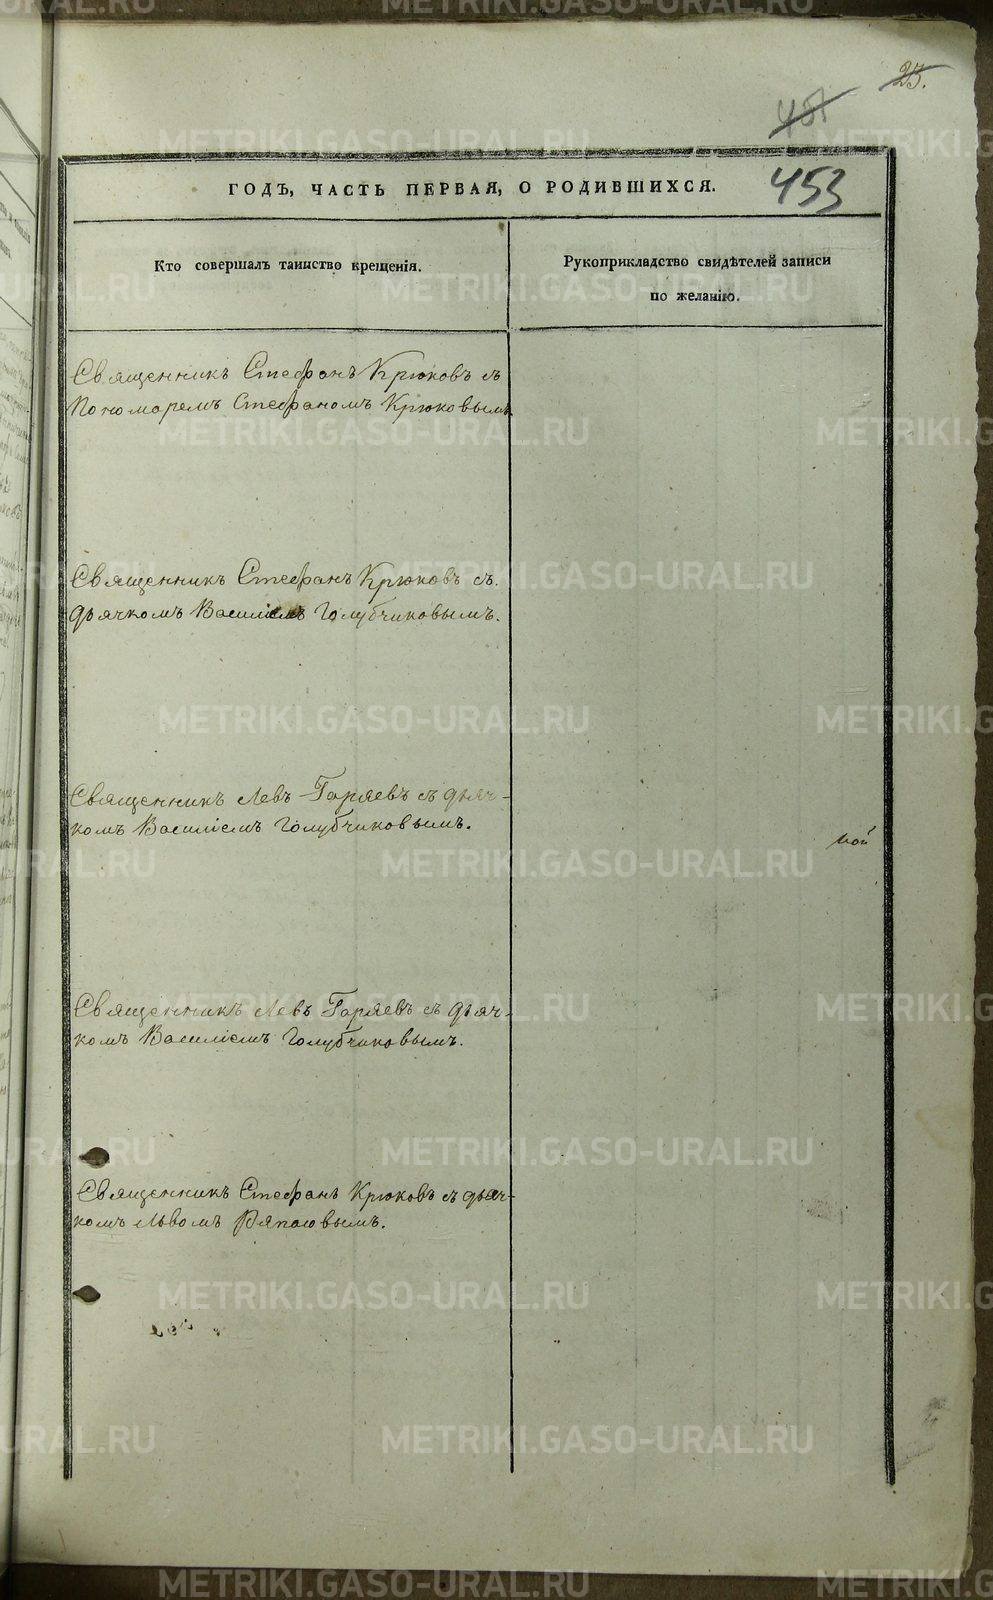 23.
451
453
ГОДЪ, ЧАСТЬ ПЕРВАЯ, О РОДИВШИХСЯ.
Кто совершалъ таинство крещенія.
Рукоприкладство свидѣтелей записи
по желанію.
Священникъ Стефанъ Крюковъ съ
Пономаремъ Стефаномъ Крюковымъ
Священникъ Стефанъ Крюковъ съ
дьячкомъ Василіемъ Голубчиковымъ.
Священникъ Левъ Гаряевъ съ дьяч-
комъ Василіемъ Голубчиковымъ.
Священникъ Левъ Гаряевъ съ дьяч-
комъ Василіемъ Голубчиковымъ.
Священникъ Стефанъ Крюковъ съ дьяч-
комъ Львомъ
METRIKI.GASO-URAL.RU